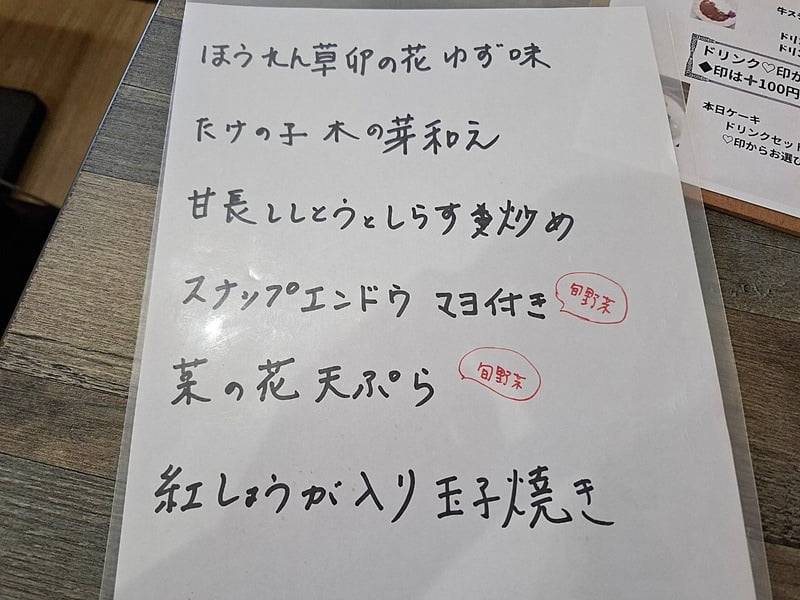 ほうれん草卯の花 ゆず味
たけの子 木の芽和え
甘長ししとうとしらす炒め
スナップエンドウ マヨ付き 旬野菜
菜の花 天ぷら 旬野菜
紅しょうが入り 玉子焼き
ドリンク♡印か
◆印は+100円
本日ケーキ
ドリンクセット
♡印からお選び